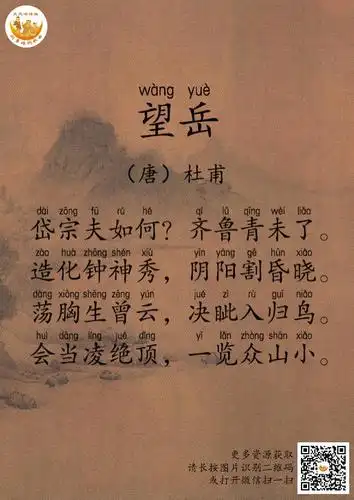 wàng yuè
望岳
（唐）杜甫
dài zōng fū rú hé qí lǔ qīng wèi liǎo
岱宗夫如何？齐鲁青未了。
zào huà zhōng shén xiù yīn yáng gē hūn xiǎo
造化钟神秀，阴阳割昏晓。
dàng xiōng shēng zēng yún jué zì rù guī niǎo
荡胸生曾云，决眦入归鸟。
huì dāng líng jué dǐng yī lǎn zhòng shān xiǎo
会当凌绝顶，一览众山小。
更多资源获取
请长按图片识别二维码
或打开微信扫一扫